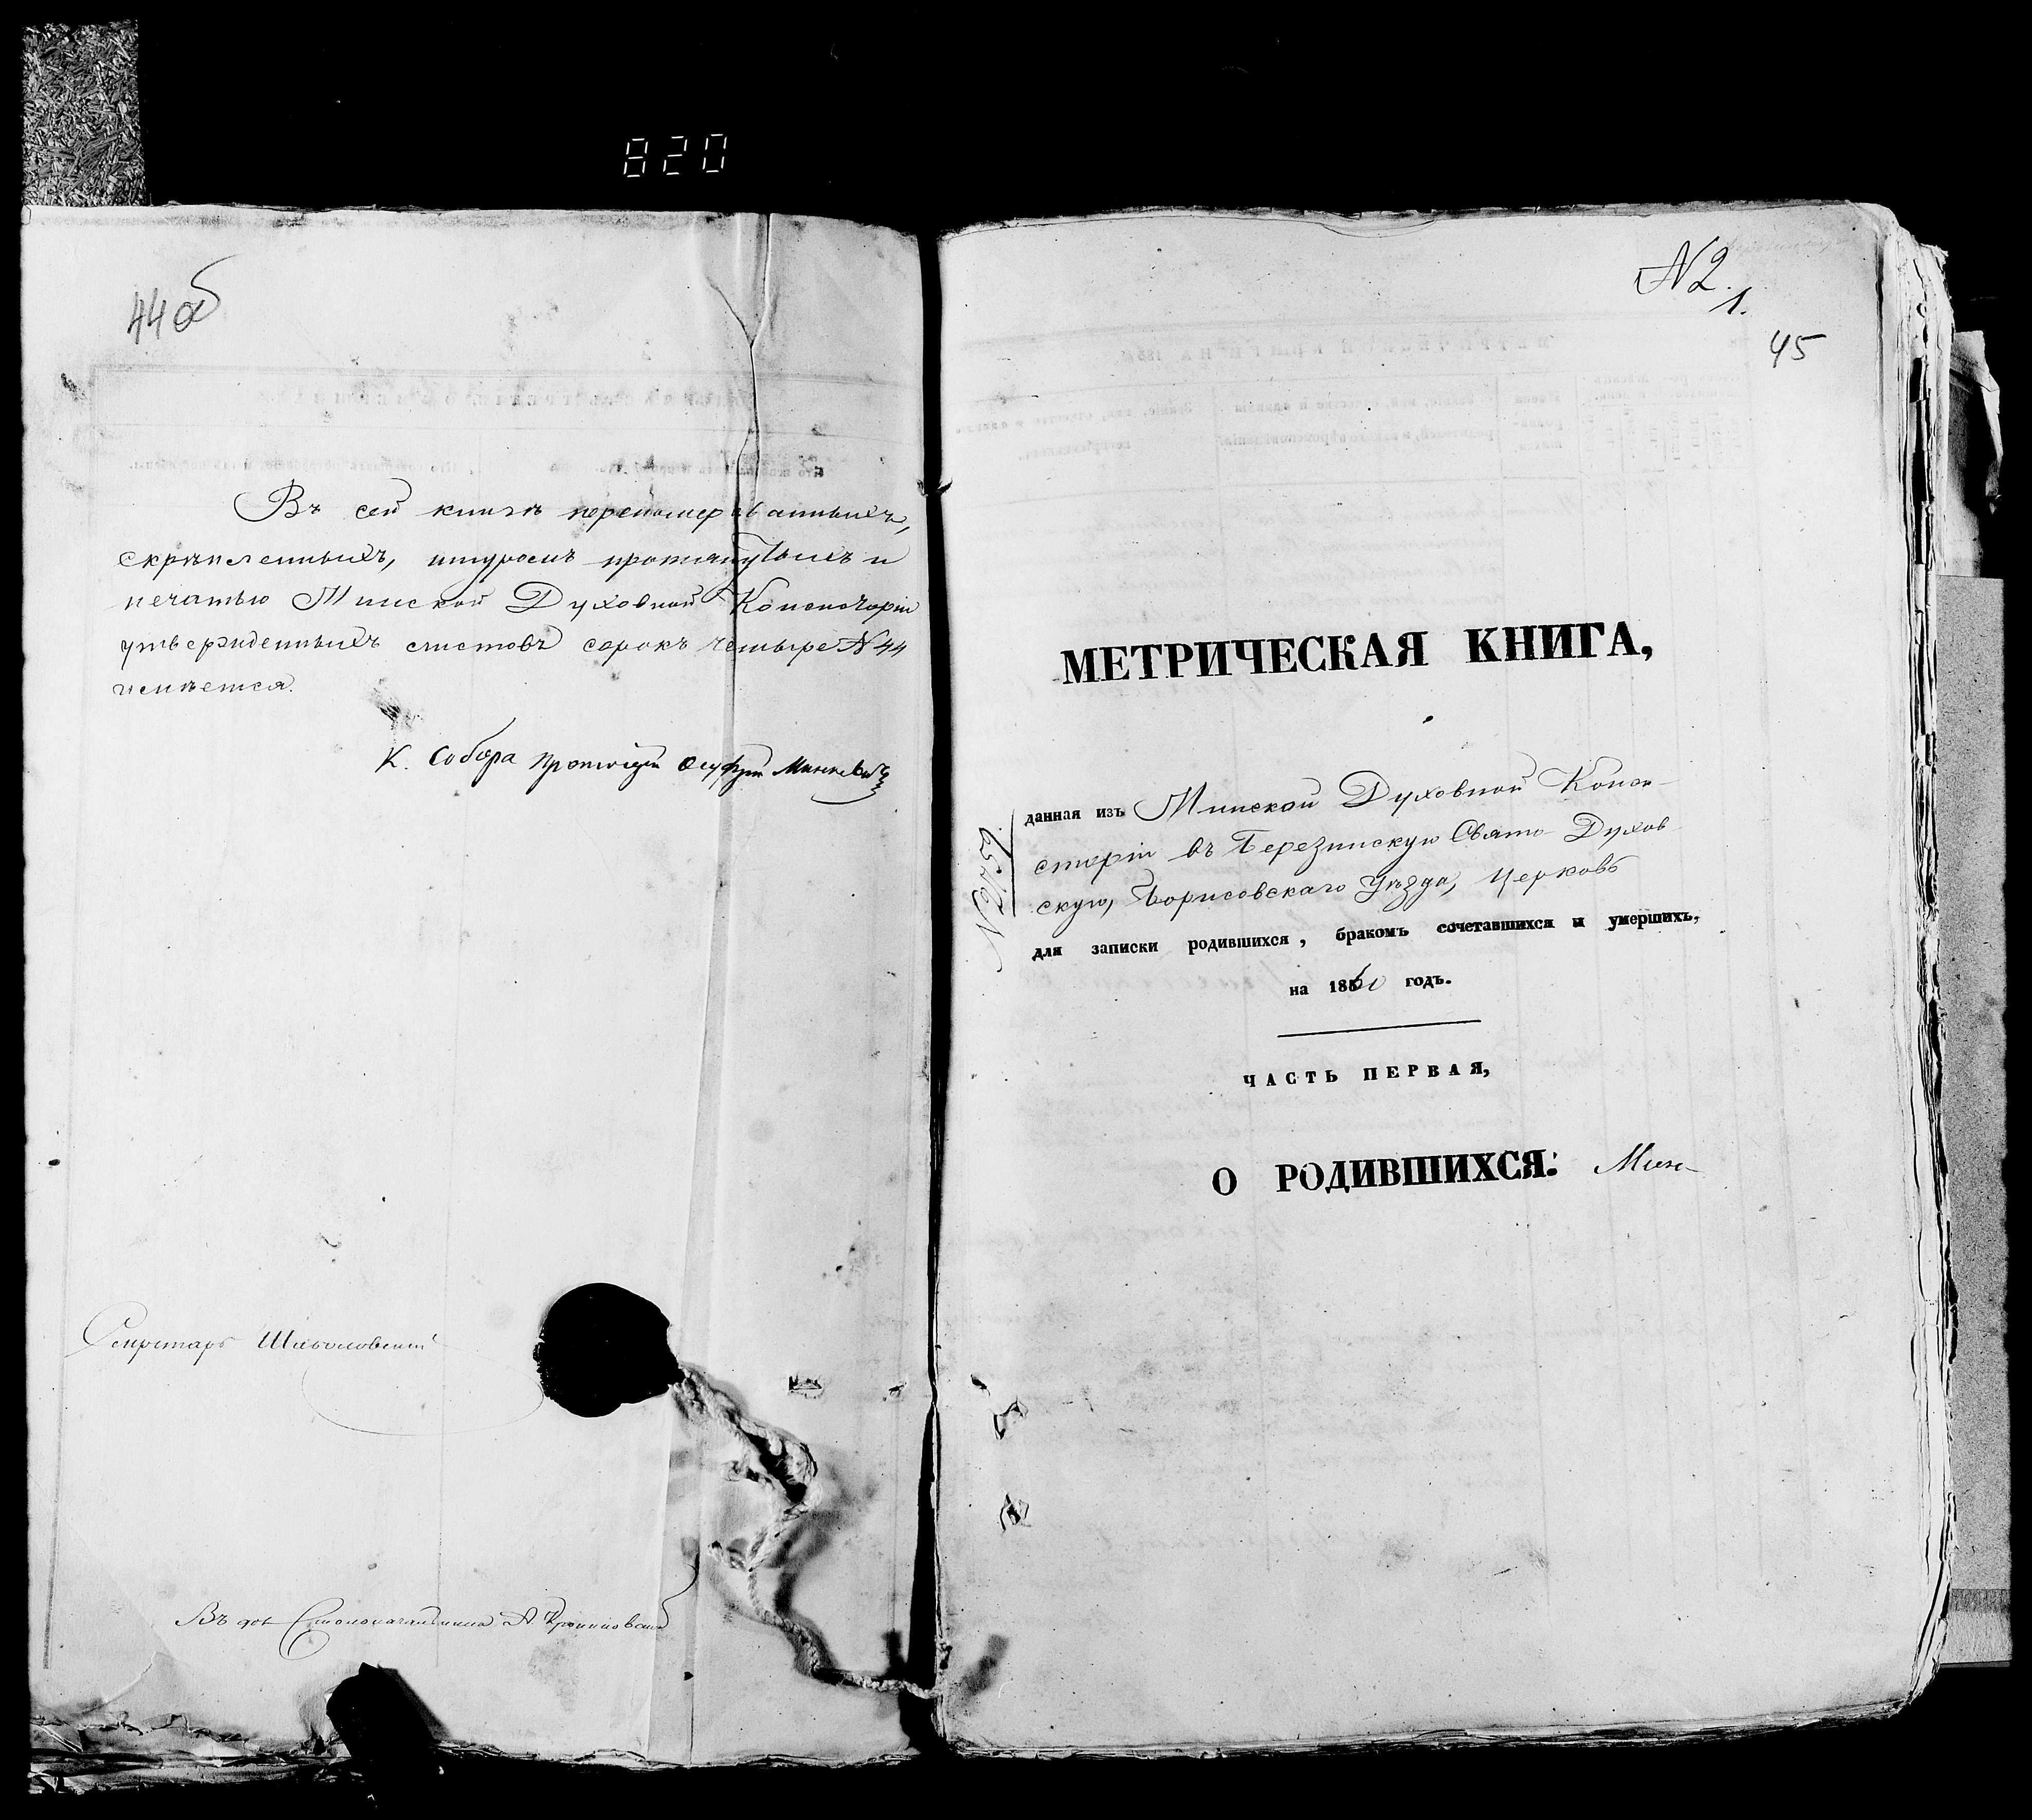 820
44об
Въ сей книгѣ перенумерованныхъ,
скрѣпленныхъ, шнуромъ протянутыхъ и
печатью Минской Духовной Консисторіи
утвержденныхъ листовъ сорокъ четыре N 44
числится.
К. Собора Протоіерей
Секретарь
Въ дол. Столоначальника А.
N2.
1.
45
МЕТРИЧЕСКАЯ КНИГА,
данная изъ Минской Духовной Конси-
сторіи въ Березинскую Свято-Духов
скую, Борисовскаго Уѣзда, Церковь
для записки родившихся, бракомъ сочетавшихся и умершихъ,
на 1860 годъ.
ЧАСТЬ ПЕРВАЯ,
О РОДИВШИХСЯ: Мин-